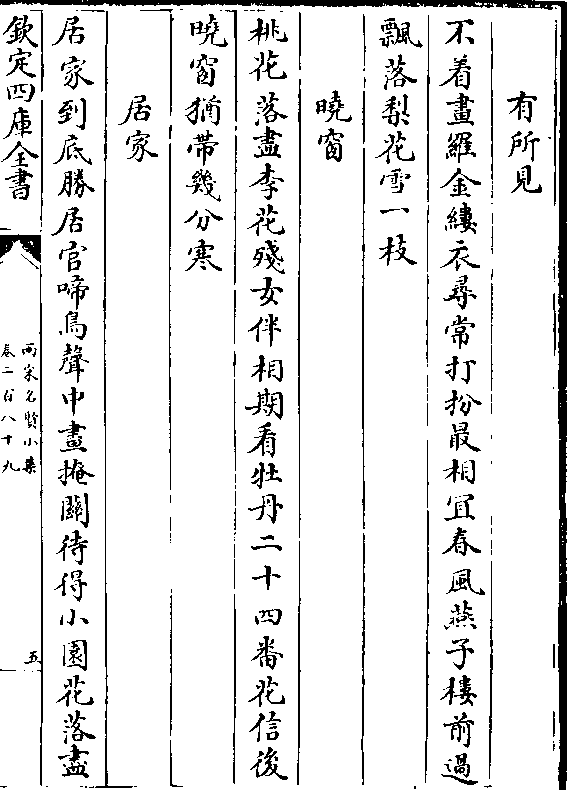 有所見
不着畫羅金縷衣尋常打扮最相宜春風燕子樓前過
飄落梨花雪一枝
曉窗
桃花落盡李花殘女伴相期看牡丹二十四番花信後
曉窗猶帶幾分寒
居家
居家到底勝居官啼鳥聲中晝掩關待得小園花落盡
欽定四庫全書
兩宋名賢小集
卷二百八十九
五